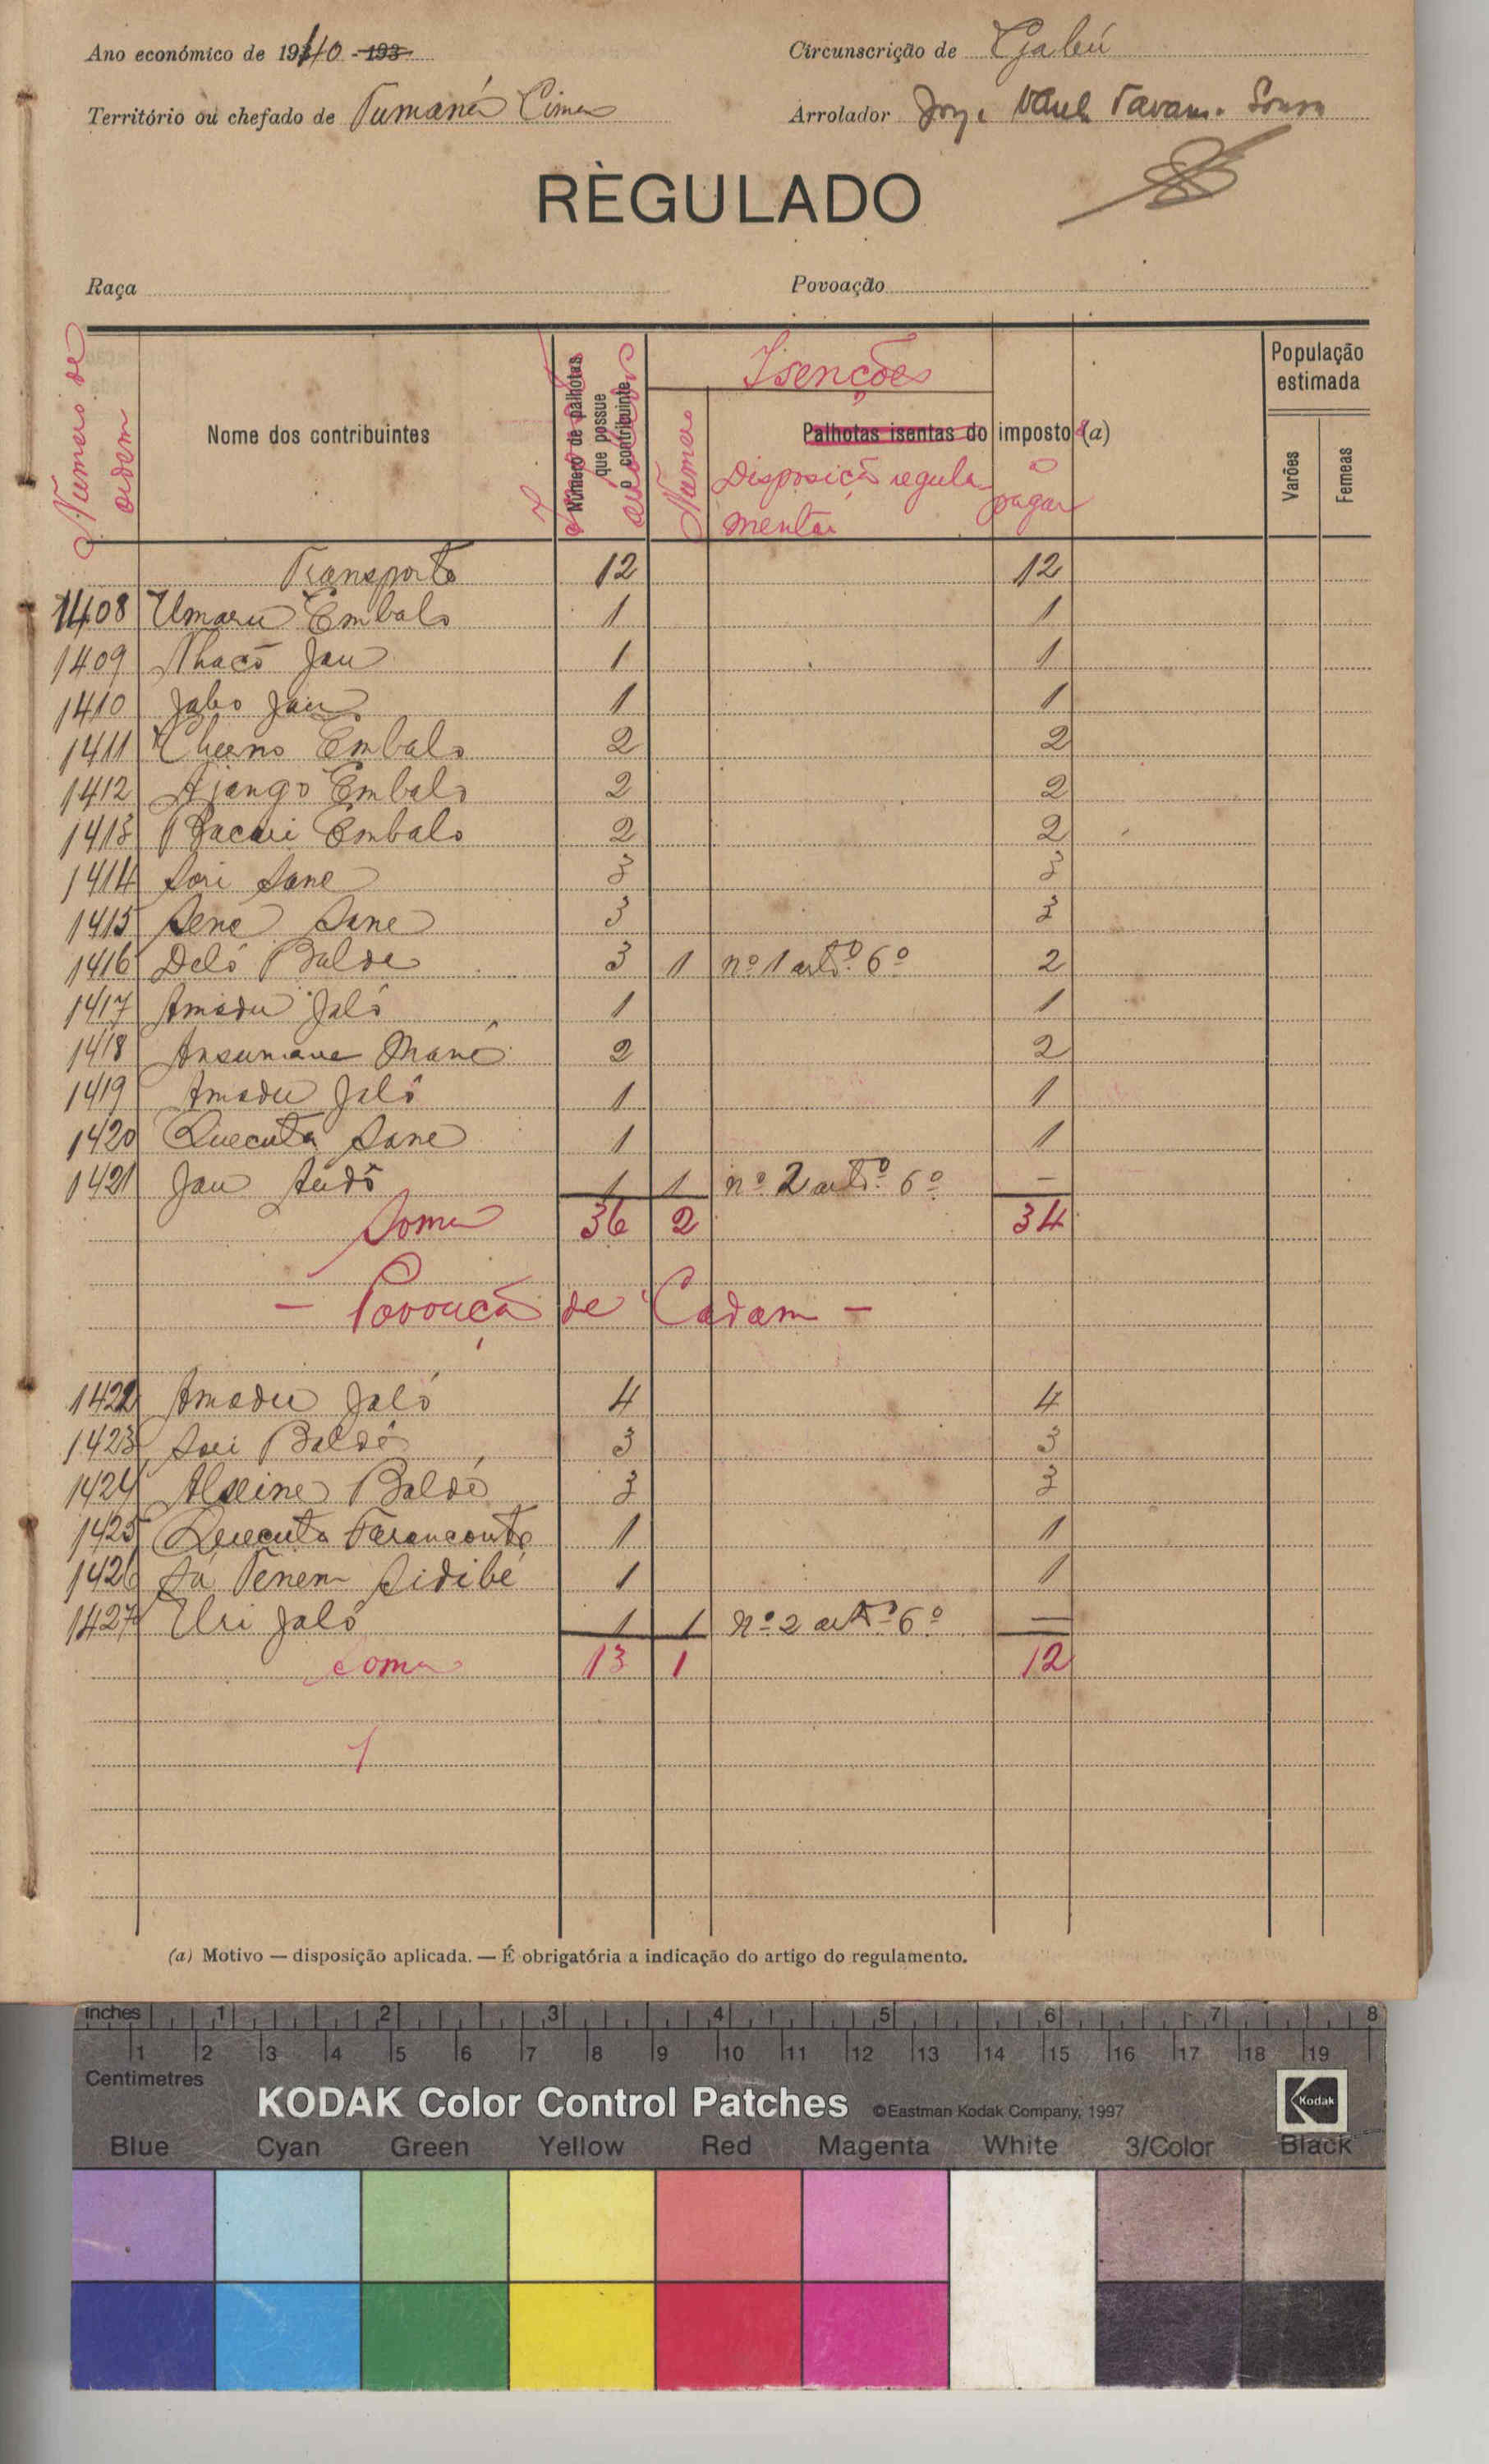 Ano económico de 1940 - 193
Circunscrição de Gabú
Território ou chefado de Tumaná Cima
Arrolador
RÈGULADO
Raça
Povoação
Numero de ordem
Nome dos contribuintes
Número de palhotas que possue o contribuinte
Isenções
Numero
Palhotas isentas do imposto (a)
Disposição regula-
mentar
a pagar
População estimada
Varões
Femeas
Transporte 12 12
1408 Umaru Embalo 1 1
1409 Thacô Jau 1 1
1410 Jabo Jau 1 1
1411 Cherno Embalo 2 2
1412 Ajango Embalo 2 2
1413 Bacari Embalo 2 2
1414 Sori Sane 3 3
1415 Sene Sane 3 3
1416 Deló Balde 3 1 nº 1 artº. 6º 2
1417 Amadu Jaló 1 1
1418 Ansumane Mané 2 2
1419 Amadu Jaló 1 1
1420 Quecuta Sane 1 1
1421 Jau 1 1 nº 2 artº. 6º —
Soma 36 2 34
— Povoação de Cadam —
1422 Amadu Jaló 4 4
1423 Sori Baldé 3 3
1424 Alseine Baldé 3 3
1425 Quecuta 1 1
1426 Sá Tenem Sidibé 1 1
1427 Uri Jaló 1 1 nº 2 artº 6º —
Soma 13 1 12
(a) Motivo — disposição aplicada. — É obrigatória a indicação do artigo do regulamento.
inches 1 2 3 4 5 6 7 8
1 2 3 4 5 6 7 8 9 10 11 12 13 14 15 16 17 18 19
Centimetres
KODAK Color Control Patches ©Eastman Kodak Company, 1997
Kodak
Blue Cyan Green Yellow Red Magenta White 3/Color Black